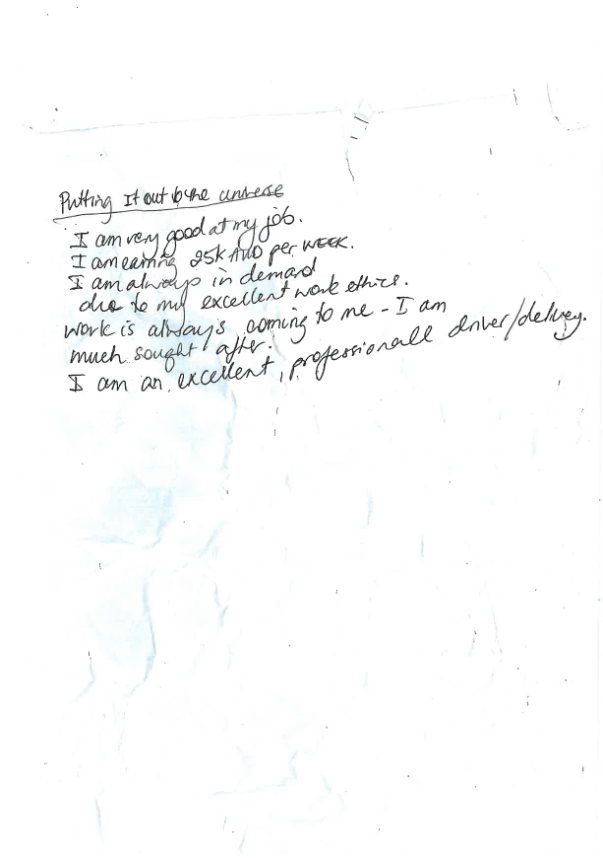 Putting It out to the universe
I am very good at my job.
I am earning 25K AUD per WEEK.
I am always in demand
due to my excellent work ethics.
work is always coming to me - I am
much sought after.
I am an excellent, professionall driver/delivery.